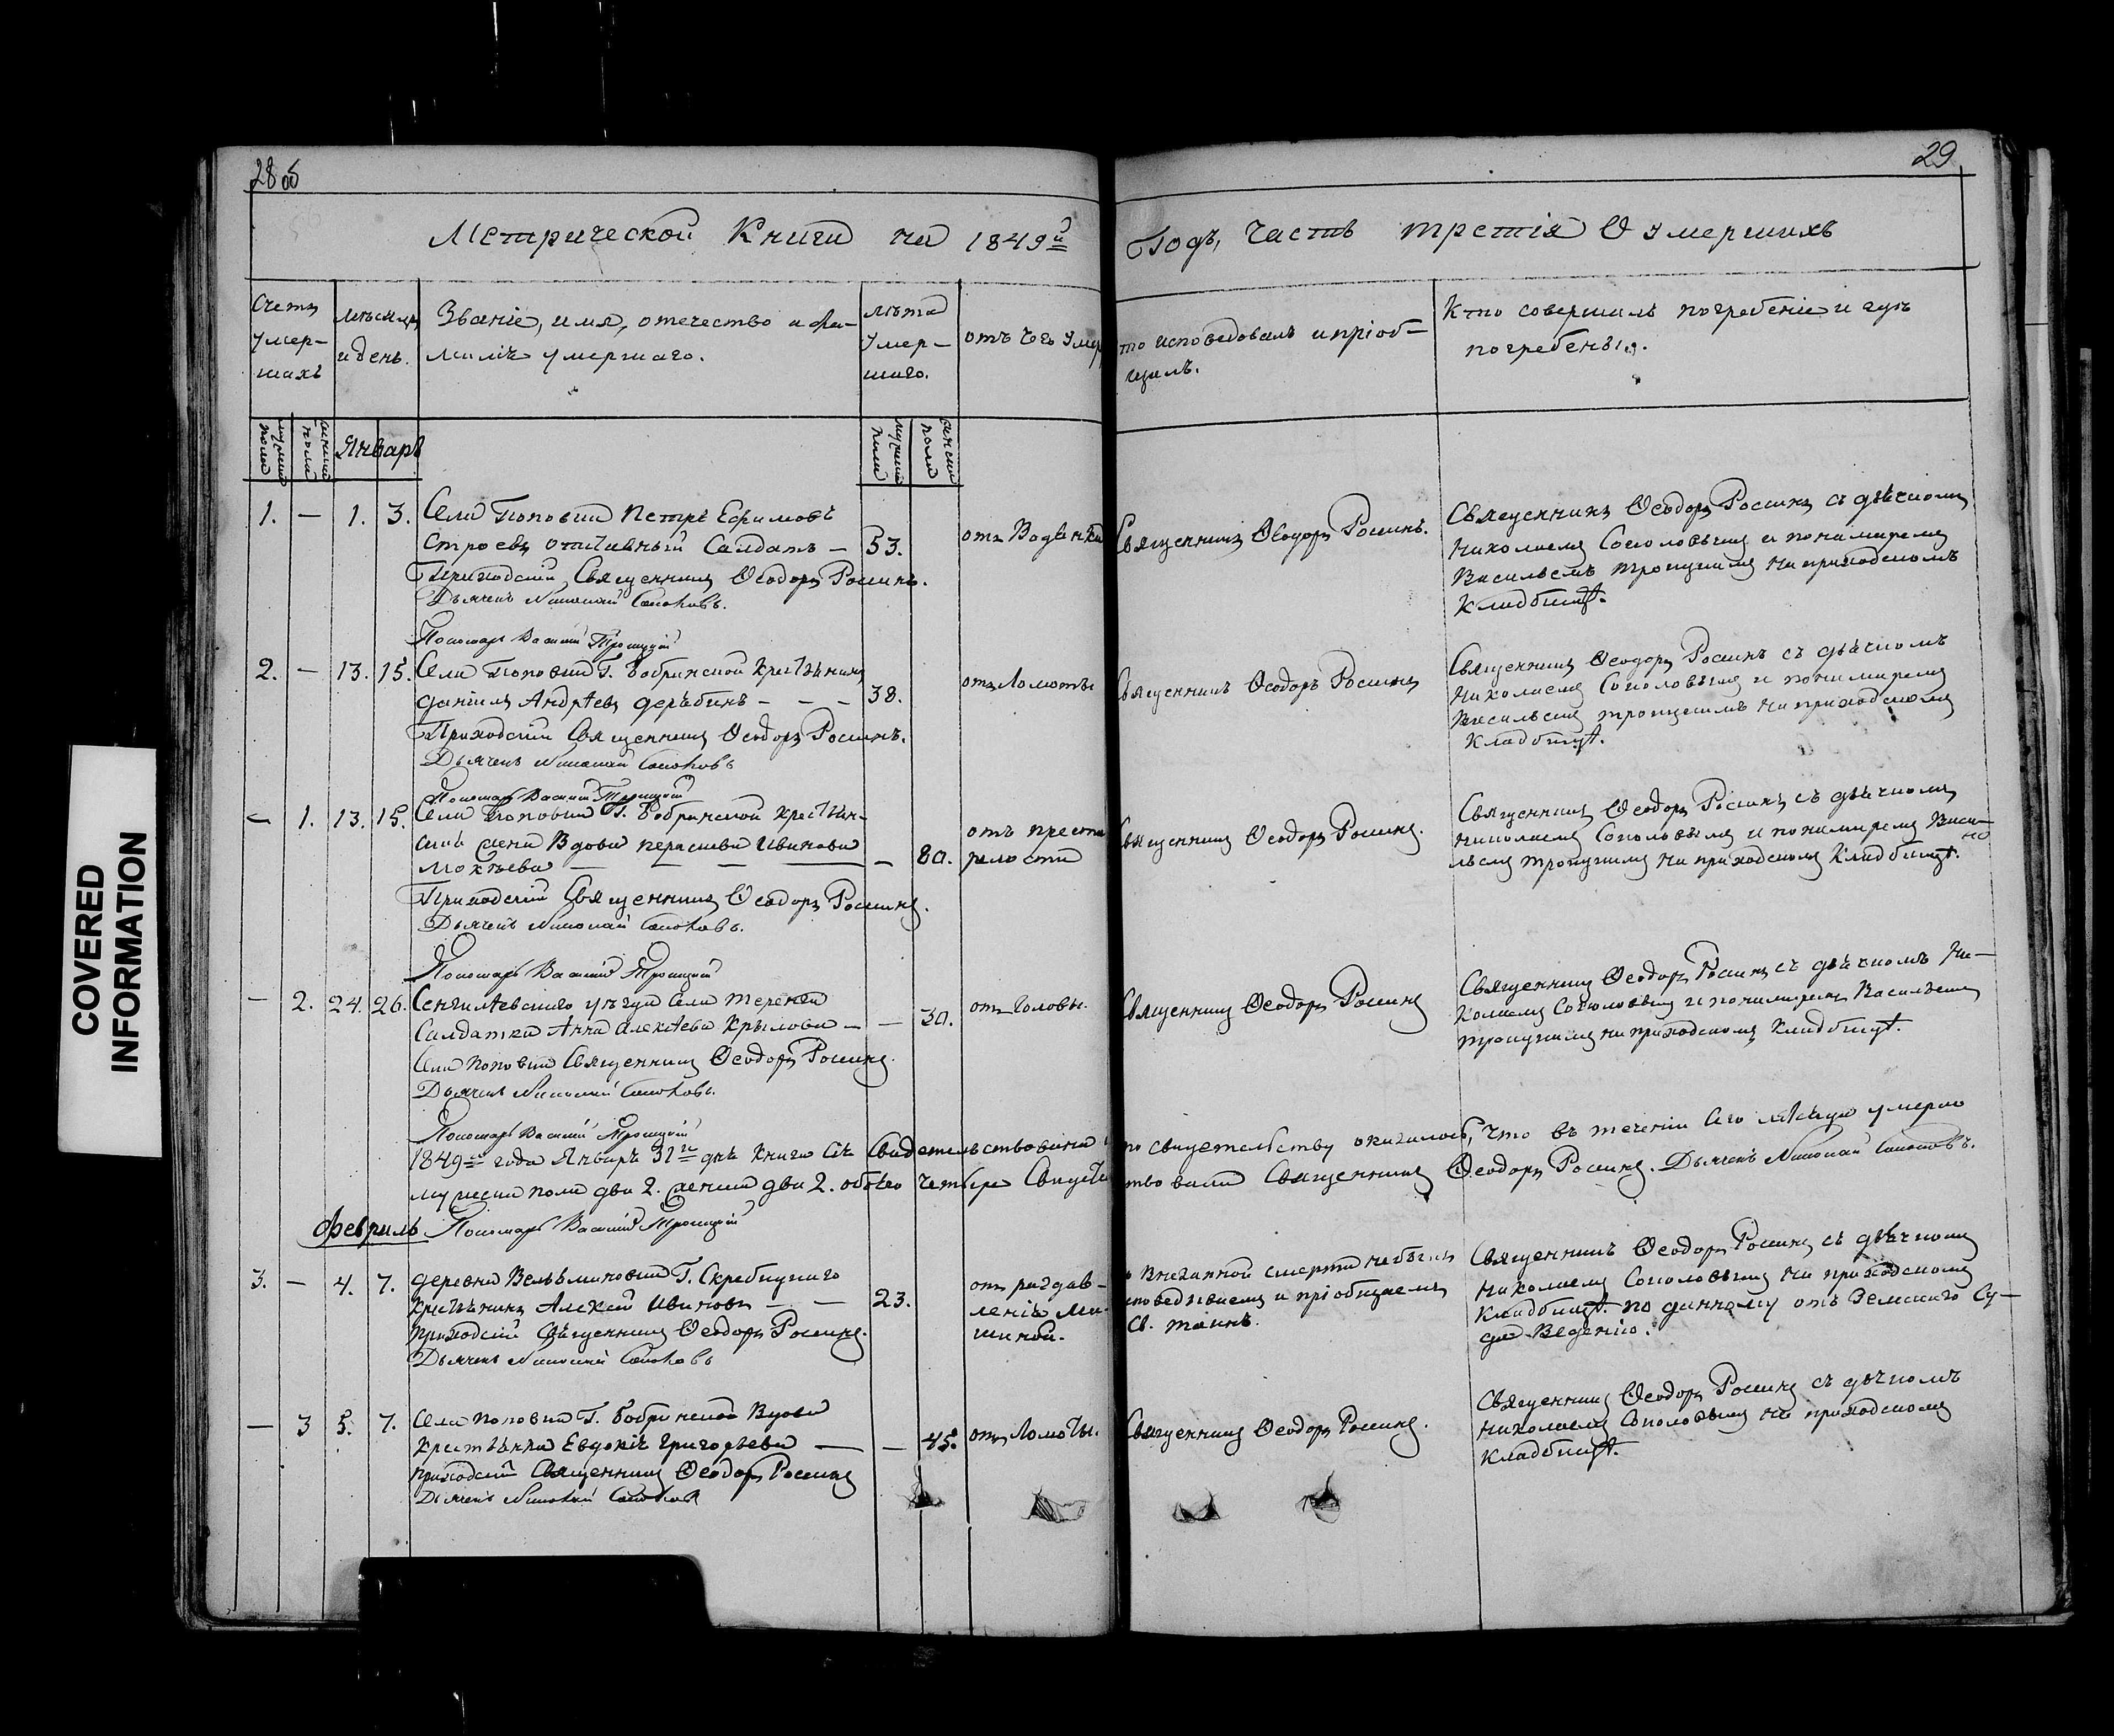 28 об
29
Метрической Книги на 1849й
Годъ, Часть третія О умершихъ
Счетъ умер-шихъ
мѣсяцъ и день.
Званіе, имя, отечество и фа-
миліе умершаго.
лѣта
умер-
шаго.
отъ чего умер
то исповедовалъ и пріоб-
щалъ.
Кто совершалъ погребеніе и гдѣ
погребены.
мужеска пола
женска пола
Январь
мужеска пола
женска пола
1. — 1. 3. Села Поповки Петръ Ефимовъ
Строевъ отставный Салдатъ — 53. отъ Водянки
Приходскій Священникъ Ѳеодоръ Росинъ.
Дьячекъ Николай Соколовъ.
Пономарь Василий Троицкий
Священникъ Ѳеодоръ Росинъ.
Священникъ Ѳеодоръ Росинъ съ дьячкомъ
Николаемъ Соколовымъ и понамаремъ
Васильемъ Троицкимъ на приходскомъ
Кладбищѣ.
2. — 13. 15. Села Поповки Г. Бобринской крестьянинъ
Даніилъ Андрѣевъ Дерябинъ — — — 38. отъ Ломоты
Приходскій Священникъ Ѳеодоръ Росинъ.
Дьячекъ Николай Соколовъ
Пономарь Василий Троицкий
Священникъ Ѳеодоръ Росинъ
Священникъ Ѳеодоръ Росинъ съ дьячкомъ
Николаемъ Соколовымъ и понамаремъ
Васильемъ Троицкимъ на приходскомъ
Кладбищѣ.
— 1. 13. 15. Села Поповки Г. Бобринской крестьян-
ская жена Вдова Парасиева Иванова
Мокѣева — — — — — 80. отъ преста
релости
Приходскій Священникъ Ѳеодоръ Росинъ.
Дьячекъ Николай Соколовъ.
Пономарь Василий Троицкий
Священникъ Ѳеодоръ Росинъ.
Священникъ Ѳеодоръ Росинъ съ дьячкомъ
Николаемъ Соколовымъ и понамаремъ Васи-
льемъ Троицкимъ на приходскомъ Кладбищѣ.
— 2. 24. 26. Сенгилѣевскаго уѣзда Села Теренги
Салдатка Анна Алексѣева Крылова — — 30. отъ Головы.
Села Поповки Священникъ Ѳеодоръ Росинъ.
Дьячекъ Николай Соколовъ.
Пономарь Василий Троицкий
Священникъ Ѳеодоръ Росинъ
Священникъ Ѳеодоръ Росинъ съ дьячкомъ Ни-
колаемъ Соколовымъ и понамаремъ Васильемъ
Троицкимъ на приходскомъ Кладбищѣ.
1849го года Январь 31го дня Книга Сія Свидетельствована
по свидетельству оказалось, что въ теченіи Сего мѣсяца умерло
мужеска пола два 2. женска два 2. обоѣго Четыре Свидете
твовали Священникъ Ѳеодоръ Росинъ. Дьячекъ Николай Соколовъ.
Февраль Пономарь Василий Троицкий
3. — 4. 7. Деревни Вельяминовки Г. Скребицкаго
крестьянинъ Алексѣй Ивановъ — — 23. отъ раздав-
леніе Ма-
шиной.
Приходскій Священникъ Ѳеодоръ Росинъ.
Дьячекъ Николай Соколовъ
о внезапной смерти небылъ
споведываемъ и пріобщаемъ
Св. таинъ.
Священникъ Ѳеодоръ Росинъ съ дьячкомъ
Николаемъ Соколовымъ на приходскомъ
Кладбищѣ по данному отъ Земскаго Су-
да Веденію.
— 3 5. 7. Села Поповки Г. Бобринской Вдова
Крестьянка Евдокія Григорьева — — 45. отъ Ломоты.
Приходскій Священникъ Ѳеодоръ Росинъ
Дьячекъ Николай Соколовъ
Священникъ Ѳеодоръ Росинъ.
Священникъ Ѳеодоръ Росинъ съ дьячкомъ
Николаемъ Соколовымъ на приходскомъ
Кладбищѣ.
COVERED
INFORMATION